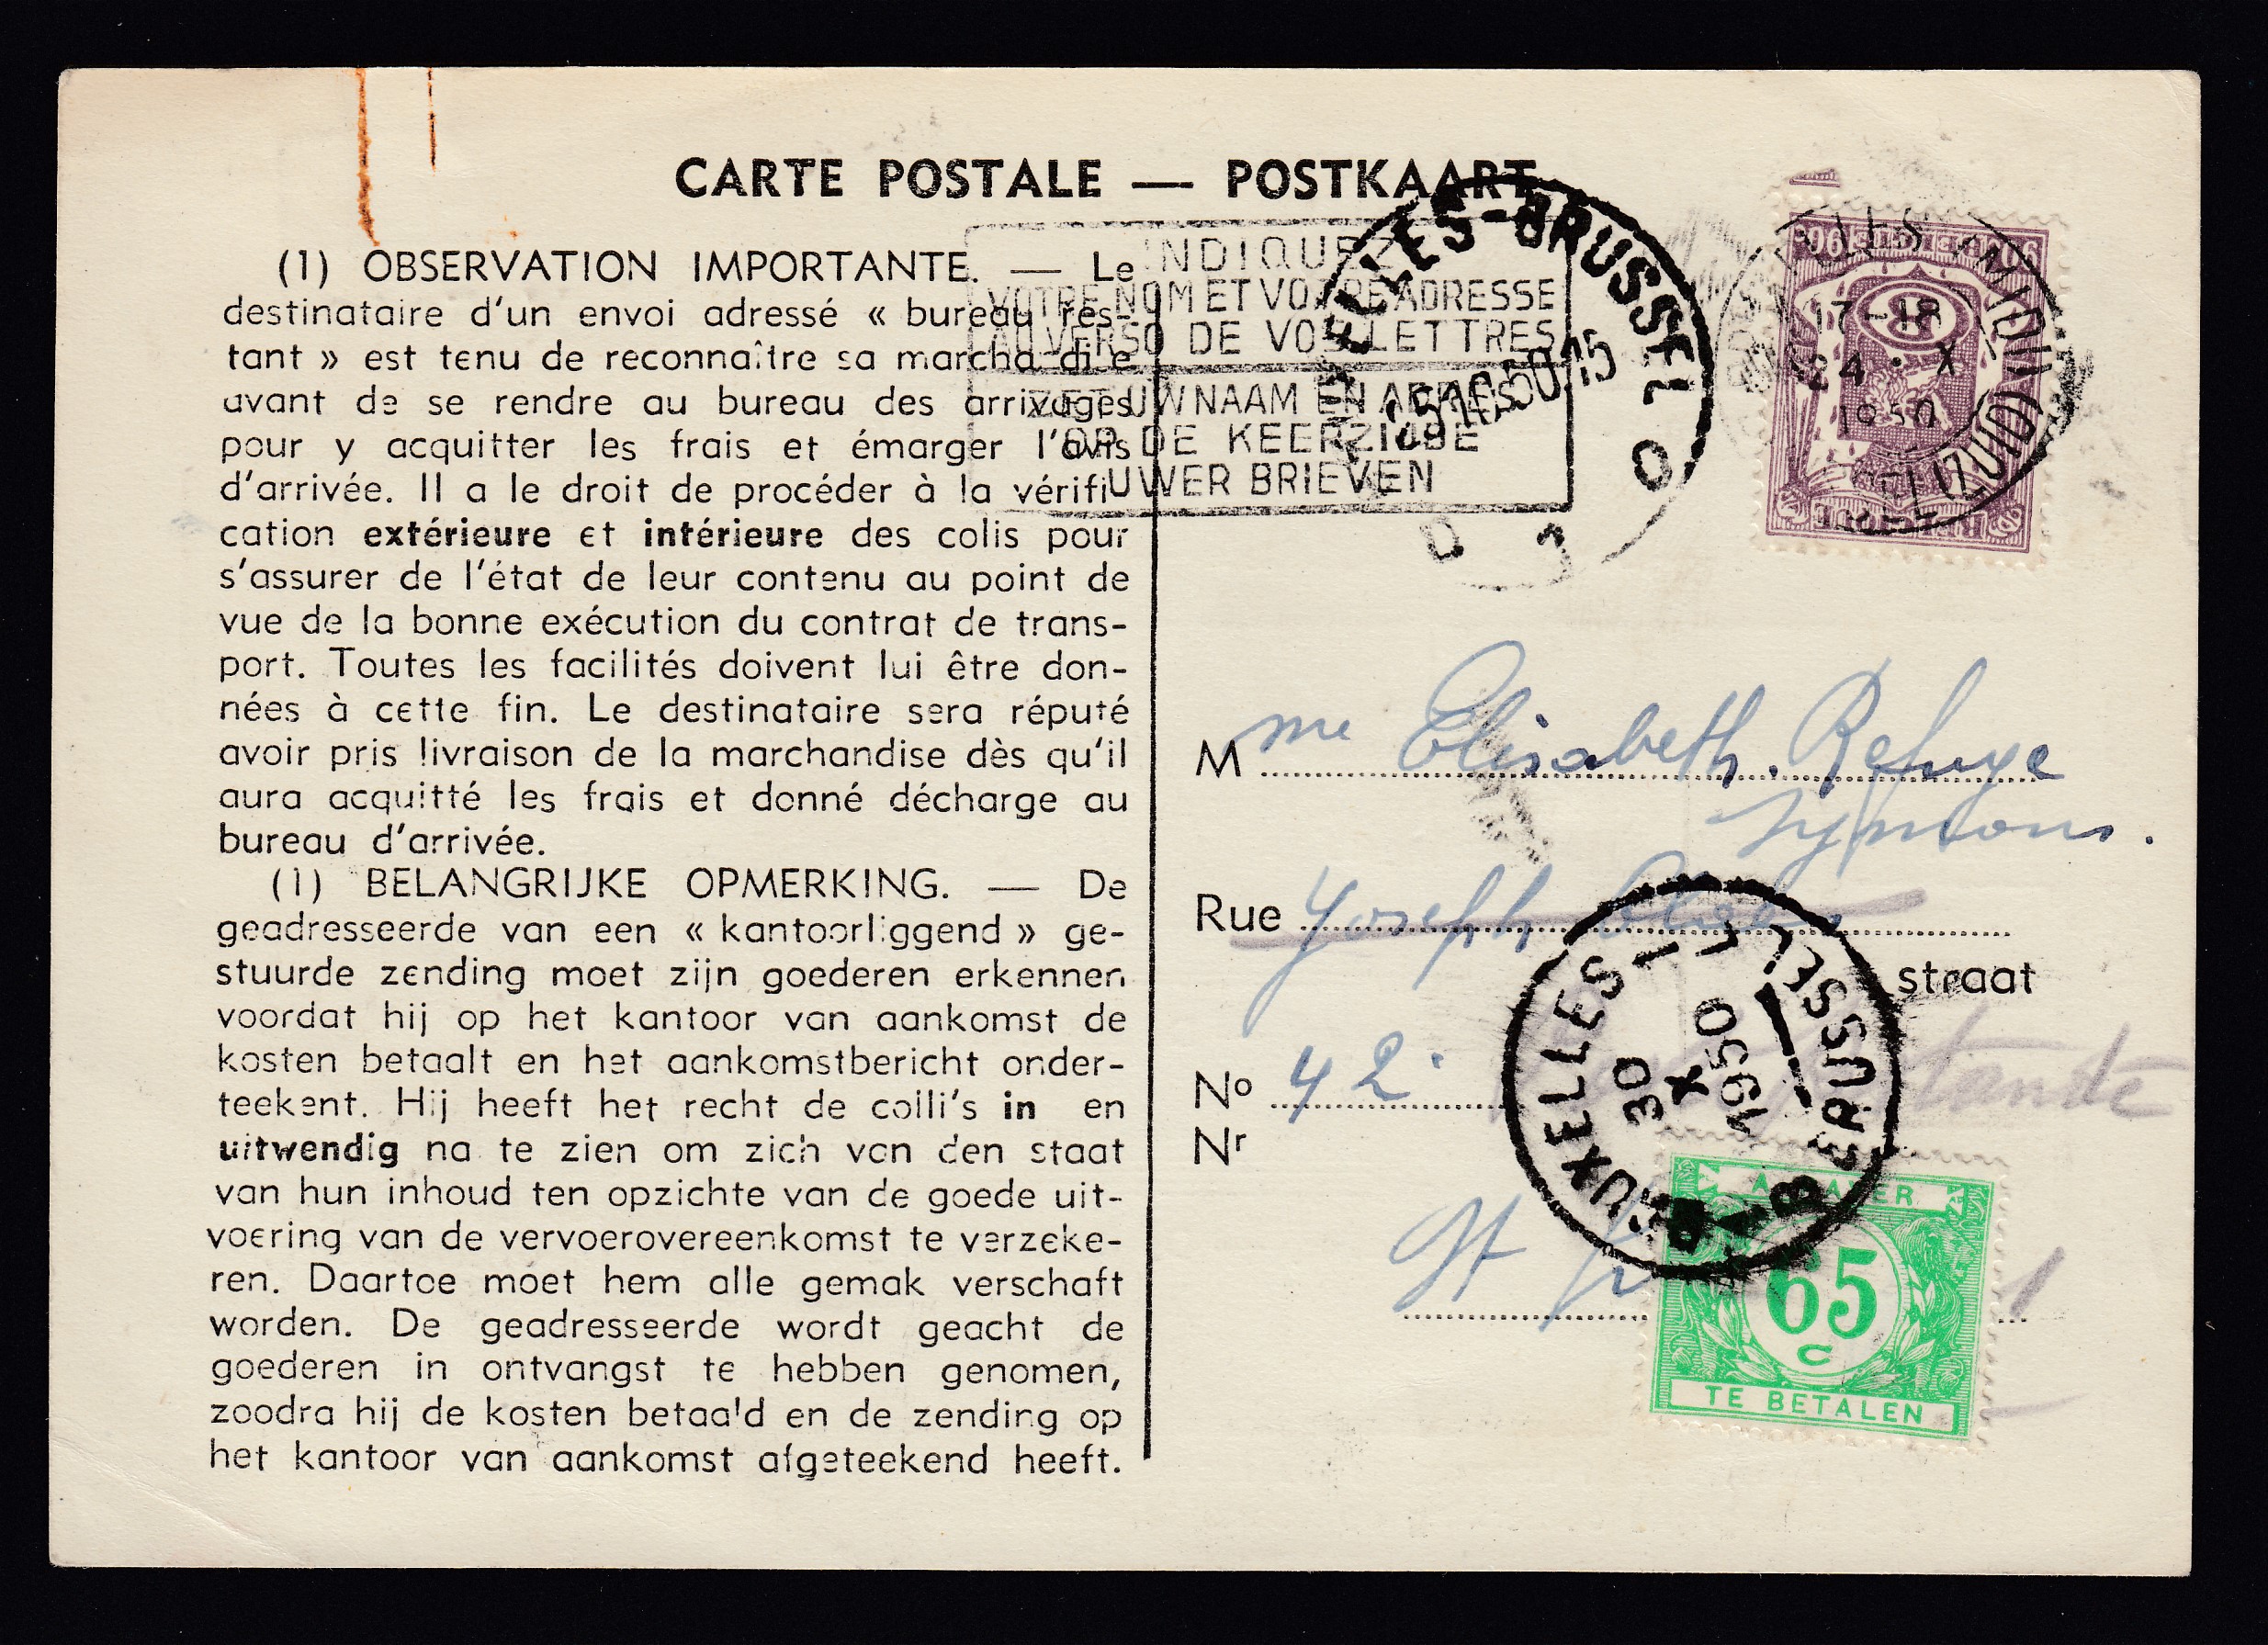 CARTE POSTALE — POSTKAART
(1) OBSERVATION IMPORTANTE. — Le
destinataire d'un envoi adressé « bureau res-
tant » est tenu de reconnaître sa marchandise
avant de se rendre au bureau des arrivages
pour y acquitter les frais et émarger l'avis
d'arrivée. Il a le droit de procéder à la vérifi-
cation extérieure et intérieure des colis pour
s'assurer de l'état de leur contenu au point de
vue de la bonne exécution du contrat de trans-
port. Toutes les facilités doivent lui être don-
nées à cette fin. Le destinataire sera réputé
avoir pris livraison de la marchandise dès qu'il
aura acquitté les frais et donné décharge au
bureau d'arrivée.
(1) BELANGRIJKE OPMERKING. — De
geadresseerde van een « kantoorliggend » ge-
stuurde zending moet zijn goederen erkennen
voordat hij op het kantoor van aankomst de
kosten betaalt en het aankomstbericht onder-
teekent. Hij heeft het recht de colli's in en
uitwendig na te zien om zich van den staat
van hun inhoud ten opzichte van de goede uit-
voering van de vervoerovereenkomst te verzeke-
ren. Daartoe moet hem alle gemak verschaft
worden. De geadresseerde wordt geacht de
goederen in ontvangst te hebben genomen,
zoodra hij de kosten betaald en de zending op
het kantoor van aankomst afgeteekend heeft.
INDIQUEZ
VOTRE NOM ET VOTRE ADRESSE
AU VERSO DE VOS LETTRES
ZET UW NAAM EN ADRES
OP DE KEERZIJDE
UWER BRIEVEN
BRUXELLES-BRUSSEL
25.10.50.15
17-18
24 X
1950
BELGIQUE
BELGIE
Mme Elisabeth. Refuge
Symons.
Rue Joseph
straat
No 42.
Nr
St
BRUXELLES 1 BRUSSEL
30
X
1950
A PAYER
65
C
TE BETALEN